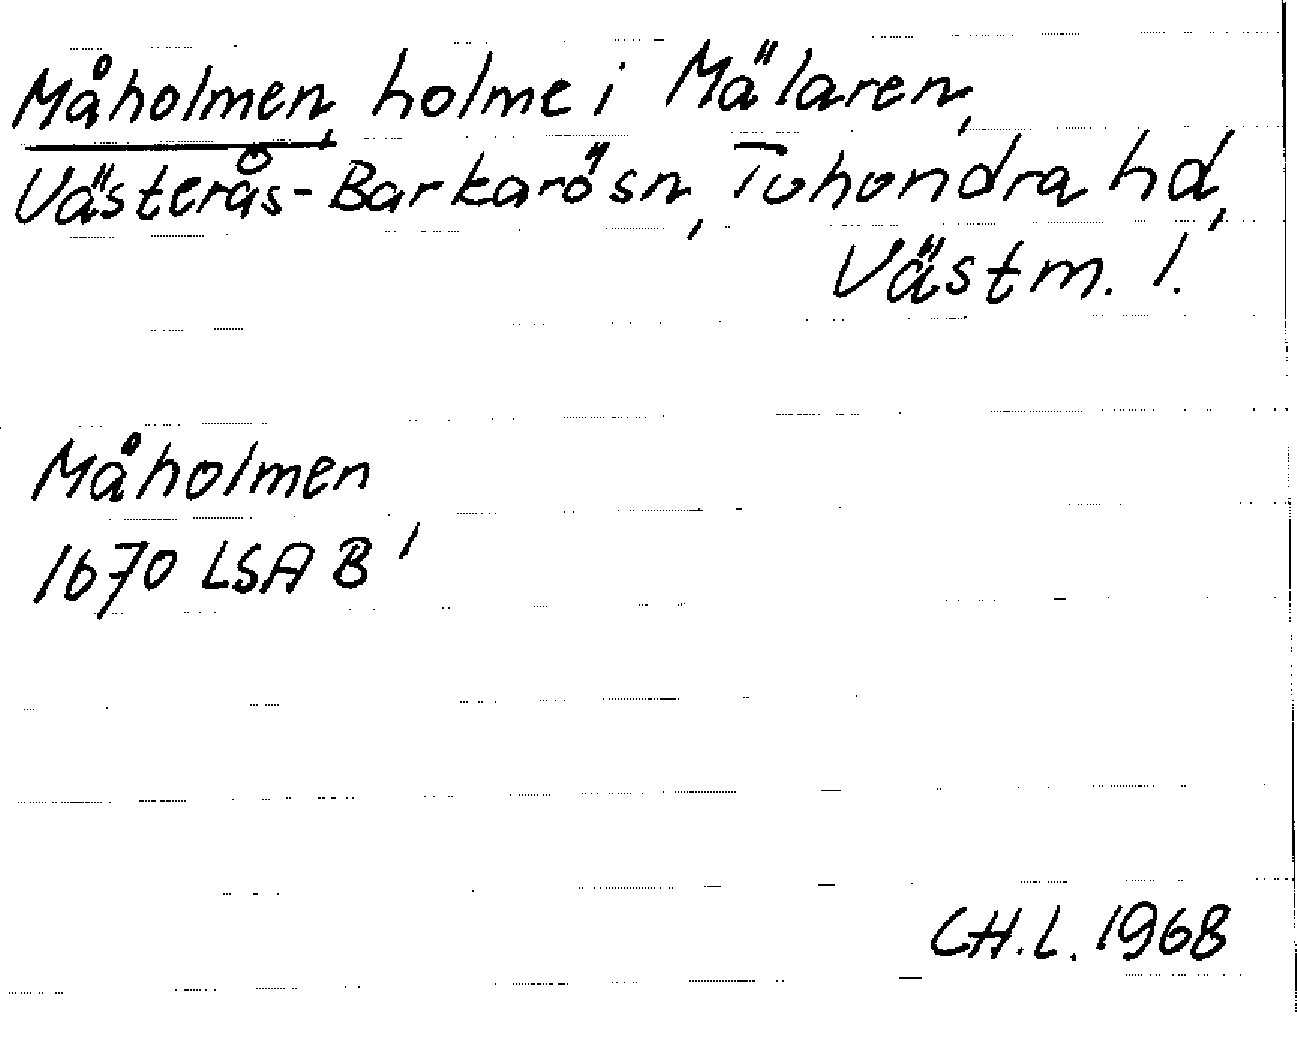 Måholmen, holme i Mälaren,
Västerås-Barkarö sn, Tuhundra hd,
Västm. l.
Måholmen
1670 LSA B 1
CH.L. 1968